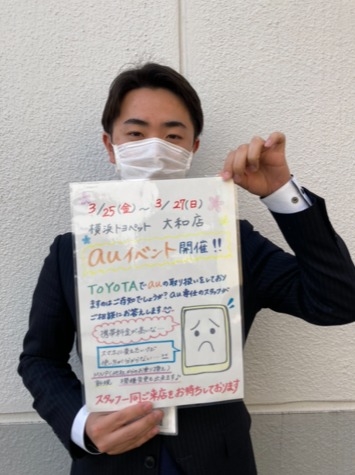 3/25(金)～3/27(日)
横浜トヨペット 大和店
auイベント開催!!
TOYOTAでauの取り扱いをしており
ますのはご存知でしょうか? au専任のスタッフが
ご相談にお答えします
携帯料金が高いな…
スマホに変えたいけど
使い方が分からない…
機種変更も出来ます♪
スタッフ一同ご来店をお待ちしております